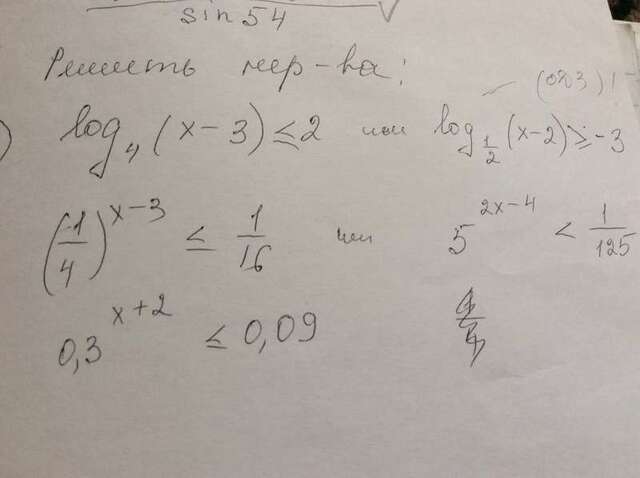 sin 54
Решить нер-ва:
(ОДЗ)
log₄ (x-3) ≤ 2 или log_{1/2} (x-2) ≥ -3
(1/4)^{x-3} ≤ 1/16 или 5^{2x-4} < 1/125
0,3^{x+2} ≤ 0,09